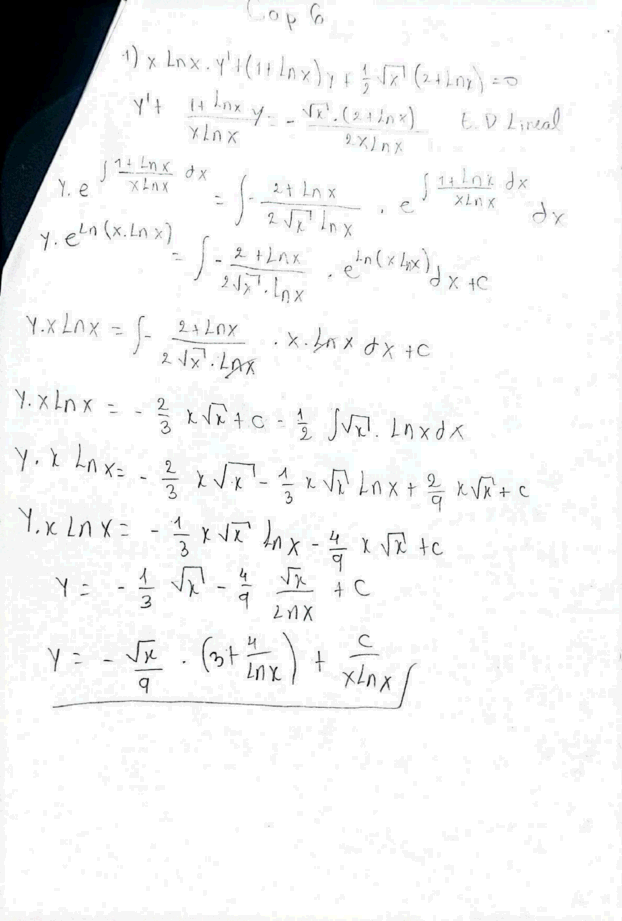 Cap 6
1) x Lnx . y' + (1 + Lnx) y + 1/2 √x (2 + Lnx) = 0
y' + (1 + Lnx)/(x Ln x) y = - √x . (2 + Lnx)/(2 x Ln x) E. D Lineal
y. e^(∫ (1 + Lnx)/(x Lnx) dx) = ∫ - (2 + Lnx)/(2 √x Lnx) . e^(∫ (1 + Lnx)/(x Lnx) dx) dx
y. e^(Ln (x.Ln x)) = ∫ - (2 + Lnx)/(2√x . Lnx) . e^(Ln (x Lnx)) dx + C
y.x Lnx = ∫ - (2 + Lnx)/(2 √x . Lnx) . x. Ln x dx + C
y. x Ln x = - 2/3 x √x + C - 1/2 ∫ √x . Lnx dx
y. x Ln x = - 2/3 x √x - 1/3 x √x Ln x + 2/9 x √x + C
y.x Ln x = - 1/3 x √x Ln x - 4/9 x √x + C
y = - 1/3 √x - 4/9 √x/Lnx + C
y = - √x/9 . (3 + 4/Lnx) + C/(x Ln x)